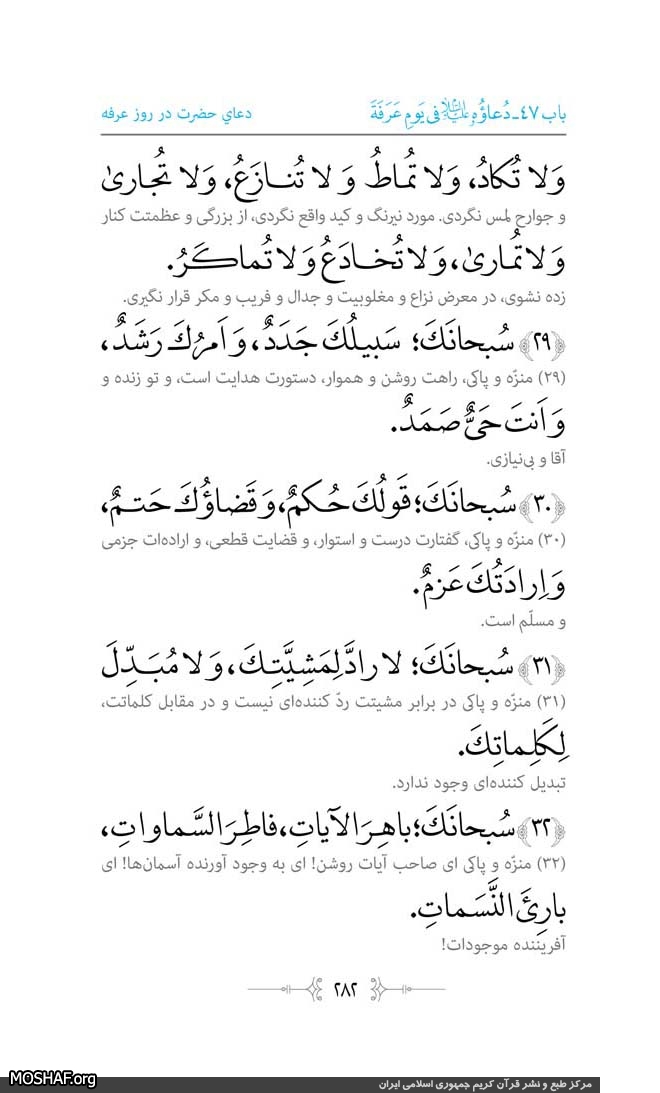 باب ٤٧ـ دُعاؤُهُ عَلَيْهِ‌السَّلامُ فی یَومِ عَرَفَةَ
دعاي حضرت در روز عرفه
وَلا تُكادُ، وَلا تُماطُ وَ لا تُنازَعُ، وَلا تُجاریٰ
و جوارح لمس نگردی. مورد نیرنگ و کید واقع نگردی، از بزرگی و عظمتت کنار
وَلا تُماریٰ، وَلا تُخادَعُ وَلا تُماكَرُ.
زده نشوی، در معرض نزاع و مغلوبیت و جدال و فریب و مکر قرار نگیری.
﴿٢٩﴾ سُبحانَكَ؛ سَبیلُكَ جَدَدٌ، وَ اَمرُكَ رَشَدٌ،
(۲۹) منزّه و پاکی، راهت روشن و هموار، دستورت هدایت است، و تو زنده و
وَ اَنتَ حَیٌّ صَمَدٌ.
آقا و بی‌نیازی.
﴿٣٠﴾ سُبحانَكَ؛ قَولُكَ حُكمٌ، وَ قَضاؤُكَ حَتمٌ،
(۳۰) منزّه و پاکی، گفتارت درست و استوار، و قضایت قطعی، و اراده‌ات جزمی
وَ اِرادَتُكَ عَزمٌ.
و مسلّم است.
﴿٣١﴾ سُبحانَكَ؛ لا رادَّ لِمَشِیَّتِكَ، وَ لا مُبَدِّلَ
(۳۱) منزّه و پاکی در برابر مشیتت ردّ کننده‌ای نیست و در مقابل کلماتت،
لِكَلِماتِكَ.
تبدیل کننده‌ای وجود ندارد.
﴿٣٢﴾ سُبحانَكَ؛ باهِرَ الآیاتِ، فاطِرَ السَّماواتِ،
(۳۲) منزّه و پاکی ای صاحب آیات روشن! ای به وجود آورنده آسمان‌ها! ای
بارِئَ النَّسَماتِ.
آفریننده موجودات!
٢٨٢
MOSHAF.org
مرکز طبع و نشر قرآن کریم جمهوری اسلامی ایران